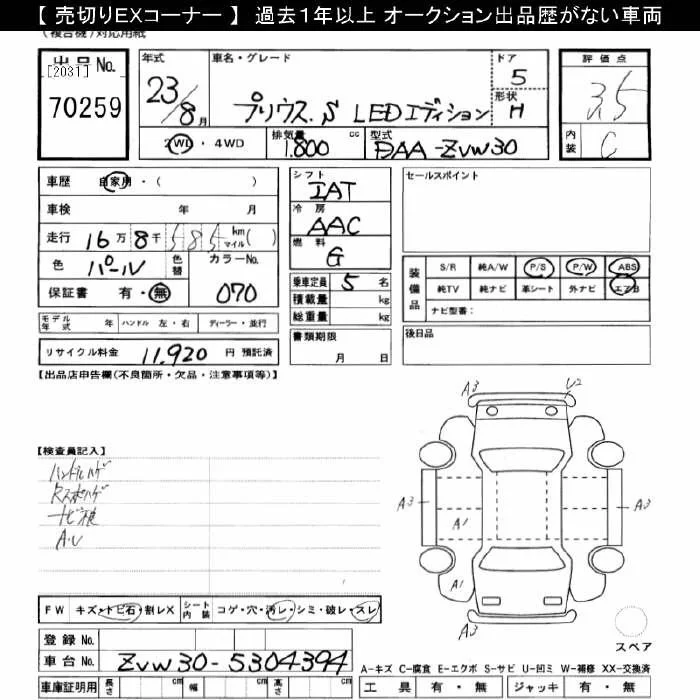 【 売切りEXコーナー 】 過去１年以上 オークション出品歴がない車両
(複合機)対応用紙
出品No.
[2031]
70259
年式
23/8月
車名・グレード
プリウス.S LEDエディション
ドア
5
形状
H
2WD ・ 4WD
排気量 cc
1.800
型式
DAA-ZVW30
評価点
3.5
内装
C
車歴 自家用・( )
車検 年 月
走行 16万8千585 km マイル( )
色 パール 色替 カラーNo.
保証書 有・無 070
シフト
IAT
冷房
AAC
燃料
G
乗車定員 5 名
積載量 kg
総重量 kg
書類期限
月 日
セールスポイント
装備品
S/R 純A/W P/S P/W ABS
純TV 純ナビ 革シート 外ナビ エアB
ナビ型番:
後日品
モデル年式 年 ハンドル 左・右 ディーラー・並行
リサイクル料金 11,920 円 預託済
【出品店申告欄(不良箇所・欠品・注意事項等)】
【検査員記入】
ハンドルハゲ
Rスポハゲ
ナビ
A.U
A3 U2
A3 A3
A1
A1
A3
スペア
FW キズ・トビ石・割レX シート内装 コゲ・穴・汚レ・シミ・破レ・スレ
登録 No.
車台 No. ZVW30-5304394
車庫証明用 長さ cm 幅 cm 高さ cm
A-キズ C-腐食 E-エクボ S-サビ U-凹ミ W-補修 XX-交換済
工具 有・無 ジャッキ 有・無